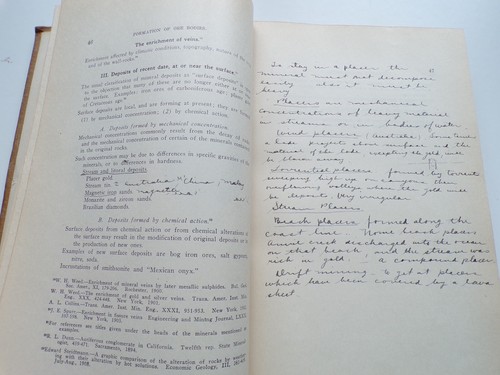 62
FORMATION OF ORE BODIES
The enrichment of veins.
Enrichment affected by climatic conditions, topography, nature of the
III. Deposits of recent date, at or near the surface.
The usual classification of mineral deposits as "surface deposits" is
Surface deposits are local, and are forming at present; they are formed
(1) by mechanical concentration; (2) by chemical action.
A. Deposits formed by mechanical concentration.
Mechanical concentrations commonly result from the decay of rocks
and the mechanical concentration of certain of the minerals contained
in the original rocks.
Such concentration may be due to differences in specific gravities of the
minerals, or to differences in hardness.
Stream and littoral deposits
Placer gold.
Stream tin Australia China, Malay
Magnetic iron sands. magnetite
Monazite and zircon sands.
Brazilian diamonds.
B. Deposits formed by chemical action.
Surface deposits from chemical action or from chemical alteration at
the surface may result in the modification of original deposits or in
the production of new ones.
Examples of new surface deposits are bog iron ores, salt, gypsum,
nitre, soda.
Incrustations of smithsonite and "Mexican onyx."
W. H. Weed—Enrichment of mineral veins by later metallic sulphides. Bul. Geol.
Soc. Amer. XI, 179-206. Rochester, 1900.
W. H. Weed—The enrichment of gold and silver veins. Trans. Amer. Inst. Min.
Eng. XXX, 424-448. New York, 1901.
A. L. Collins—Trans. Amer. Inst. Min. Eng. XXXI, 951-953. New York, 1902.
J. E. Spurr—Enrichment in fissure veins. Engineering and Mining Journal, LXXX,
New York, 1905.
For references see titles given under the heads of the minerals mentioned as
examples.
R. L. Dunn—Auriferous conglomerate in California. Twelfth rep. State Mineral-
ogist, 459-471. Sacramento, 1894.
Edward Steidtmann—A graphic comparison of the alteration of rocks by weather-
ing with their alteration by hot solutions. Economic Geology, III, 381-409.
July-Aug., 1908.
To stay in a placer the
mineral must not decompose
easily also it must be
heavy
Placers are mechanical
concentrations of heavy material
in streams or in bodies of water.
Wind placers, (Australia)
a lode projects above surface and the
material of the lode, excepting the gold will
be blown away
Torrential placers formed by torrents
sweeping high up on
valleys where the gold will
be deposited very irregular
Stream Placers
Beach placers formed along the
coast line. Nome beach placers
river discharged into the ocean
on that beach and the stream was
rich in gold. a compound placer
Drift mining. To get at placers
which have been covered by a lava
sheet